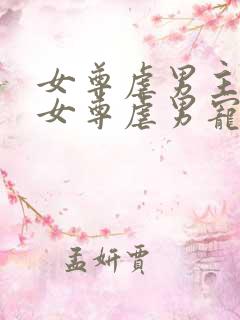 女尊虐男主
女尊虐男寵
孟妍賈